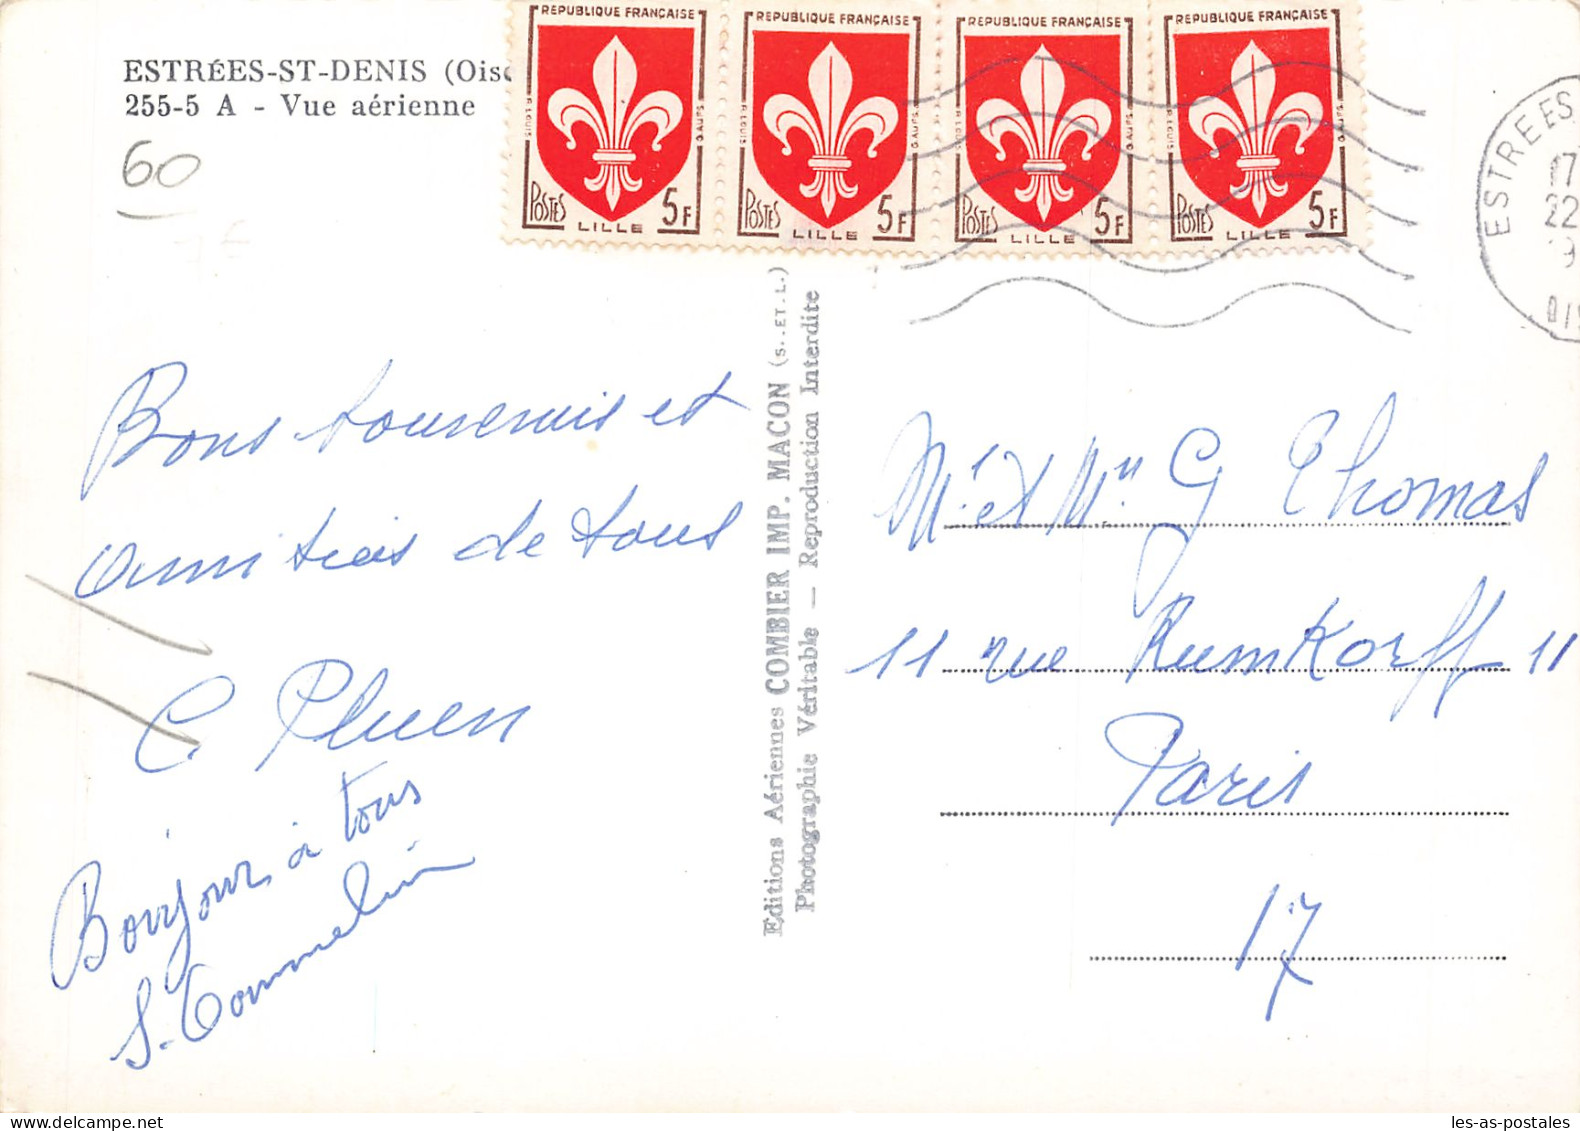 ESTRÉES-ST-DENIS (Ois
255-5 A - Vue aérienne
60
RÉPUBLIQUE FRANÇAISE
POSTES
5F
LILLE
RÉPUBLIQUE FRANÇAISE
POSTES
5F
LILLE
RÉPUBLIQUE FRANÇAISE
POSTES
5F
LILLE
RÉPUBLIQUE FRANÇAISE
POSTES
5F
LILLE
ESTREES
17
22
19
Bons souvenirs et
amitiés de tous
C. Pluen
Bonjour à tous
S. Commelin
Editions Aériennes COMBIER IMP. MACON (S.-ET-L.)
Photographie Véritable — Reproduction Interdite
Mr et Mme G Thomas
11 rue Rumkorff 11
Paris
17
les-as-postales
delcampe.net